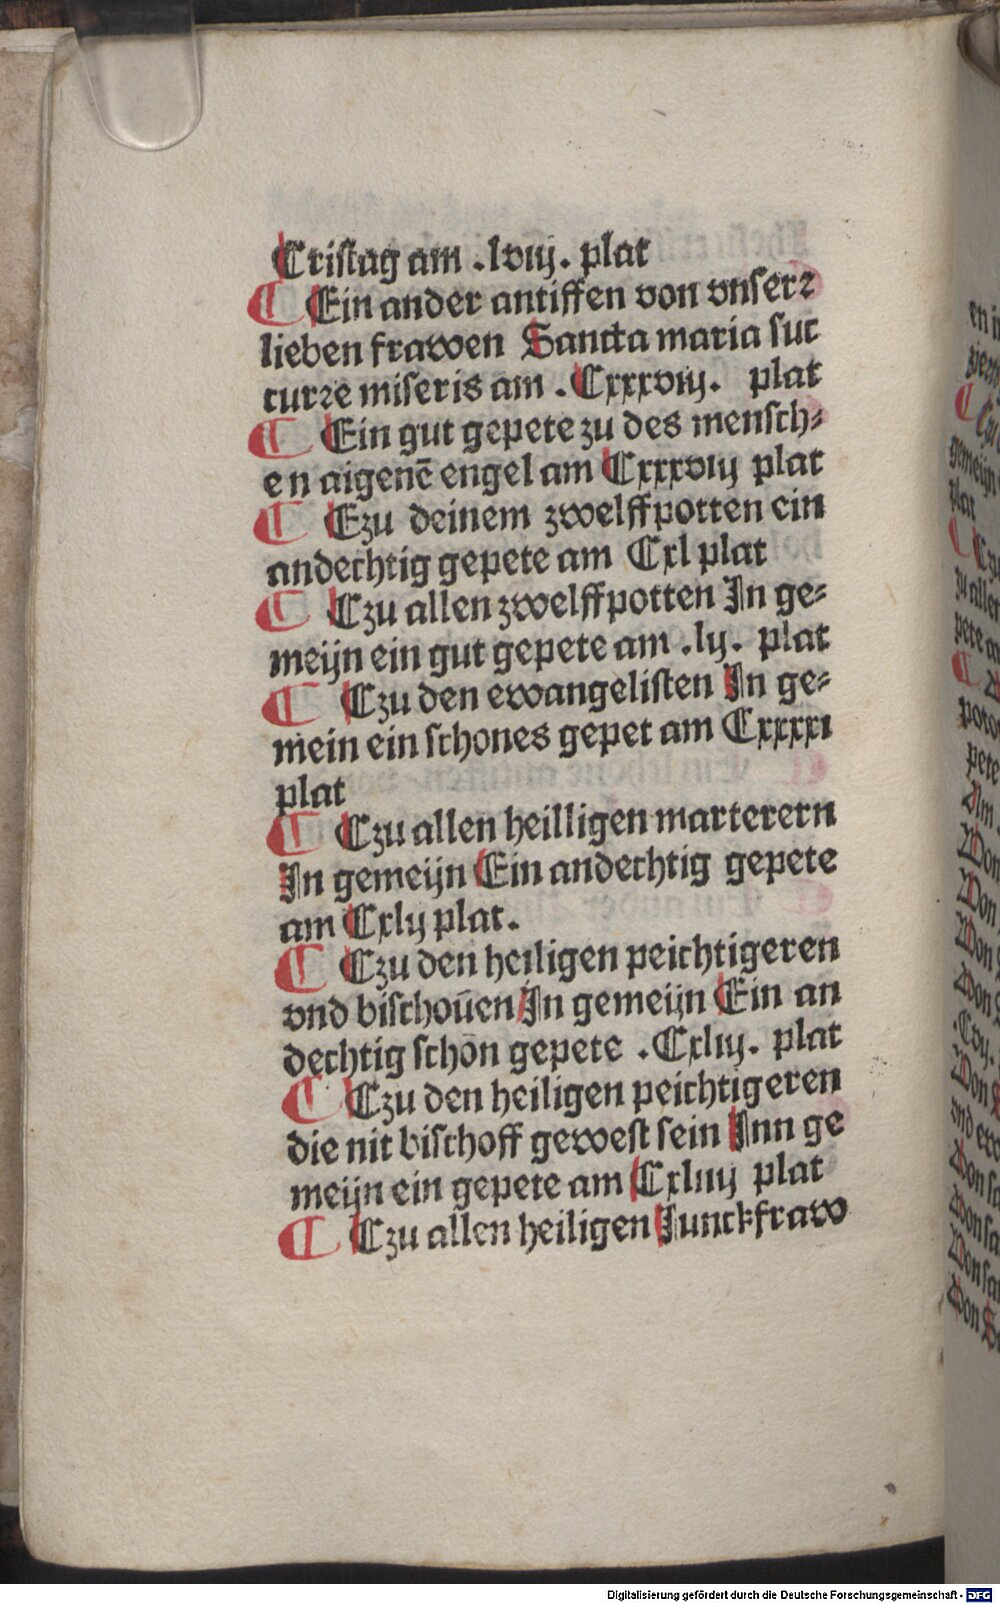 Cristag am .lviij. plat
¶ Ein ander antiffen von vnserꝛ
lieben frawen Sancta maria suc
curꝛe miseris am .Cxxxviij. plat
¶ Ein gut gepete zu des mensch⸗
en aigenē engel am Cxxxviij plat
¶ Czu deinem zwelffpotten ein
andechtig gepete am Cxl plat
¶ Czu allen zwelffpotten In ge⸗
meijn ein gut gepete am .lij. plat
¶ Czu den ewangelisten In ge⸗
mein ein schones gepet am Cxxxxi
plat
¶ Czu allen heilligen marterern
In gemeijn Ein andechtig gepete
am Cxlij plat.
¶ Czu den heiligen peichtigeren
vnd bischoūen In gemeijn Ein an
dechtig schōn gepete .Cxliij. plat
¶ Czu den heiligen peichtigeren
die nit bischoff gewest sein Inn ge
meijn ein gepete am Cxliiij plat
¶ Czu allen heiligen Junckfraw
Digitalisierung gefördert durch die Deutsche Forschungsgemeinschaft - DFG